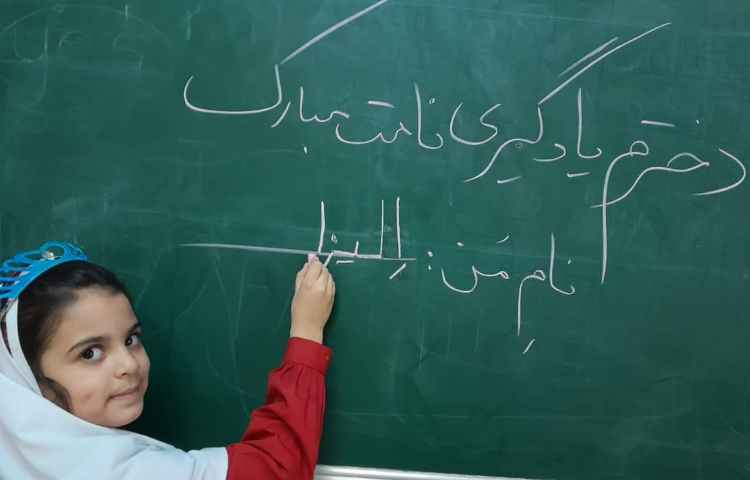 دخترم یادگیری نامت مبارک
نامِ مَن: اِلیزا